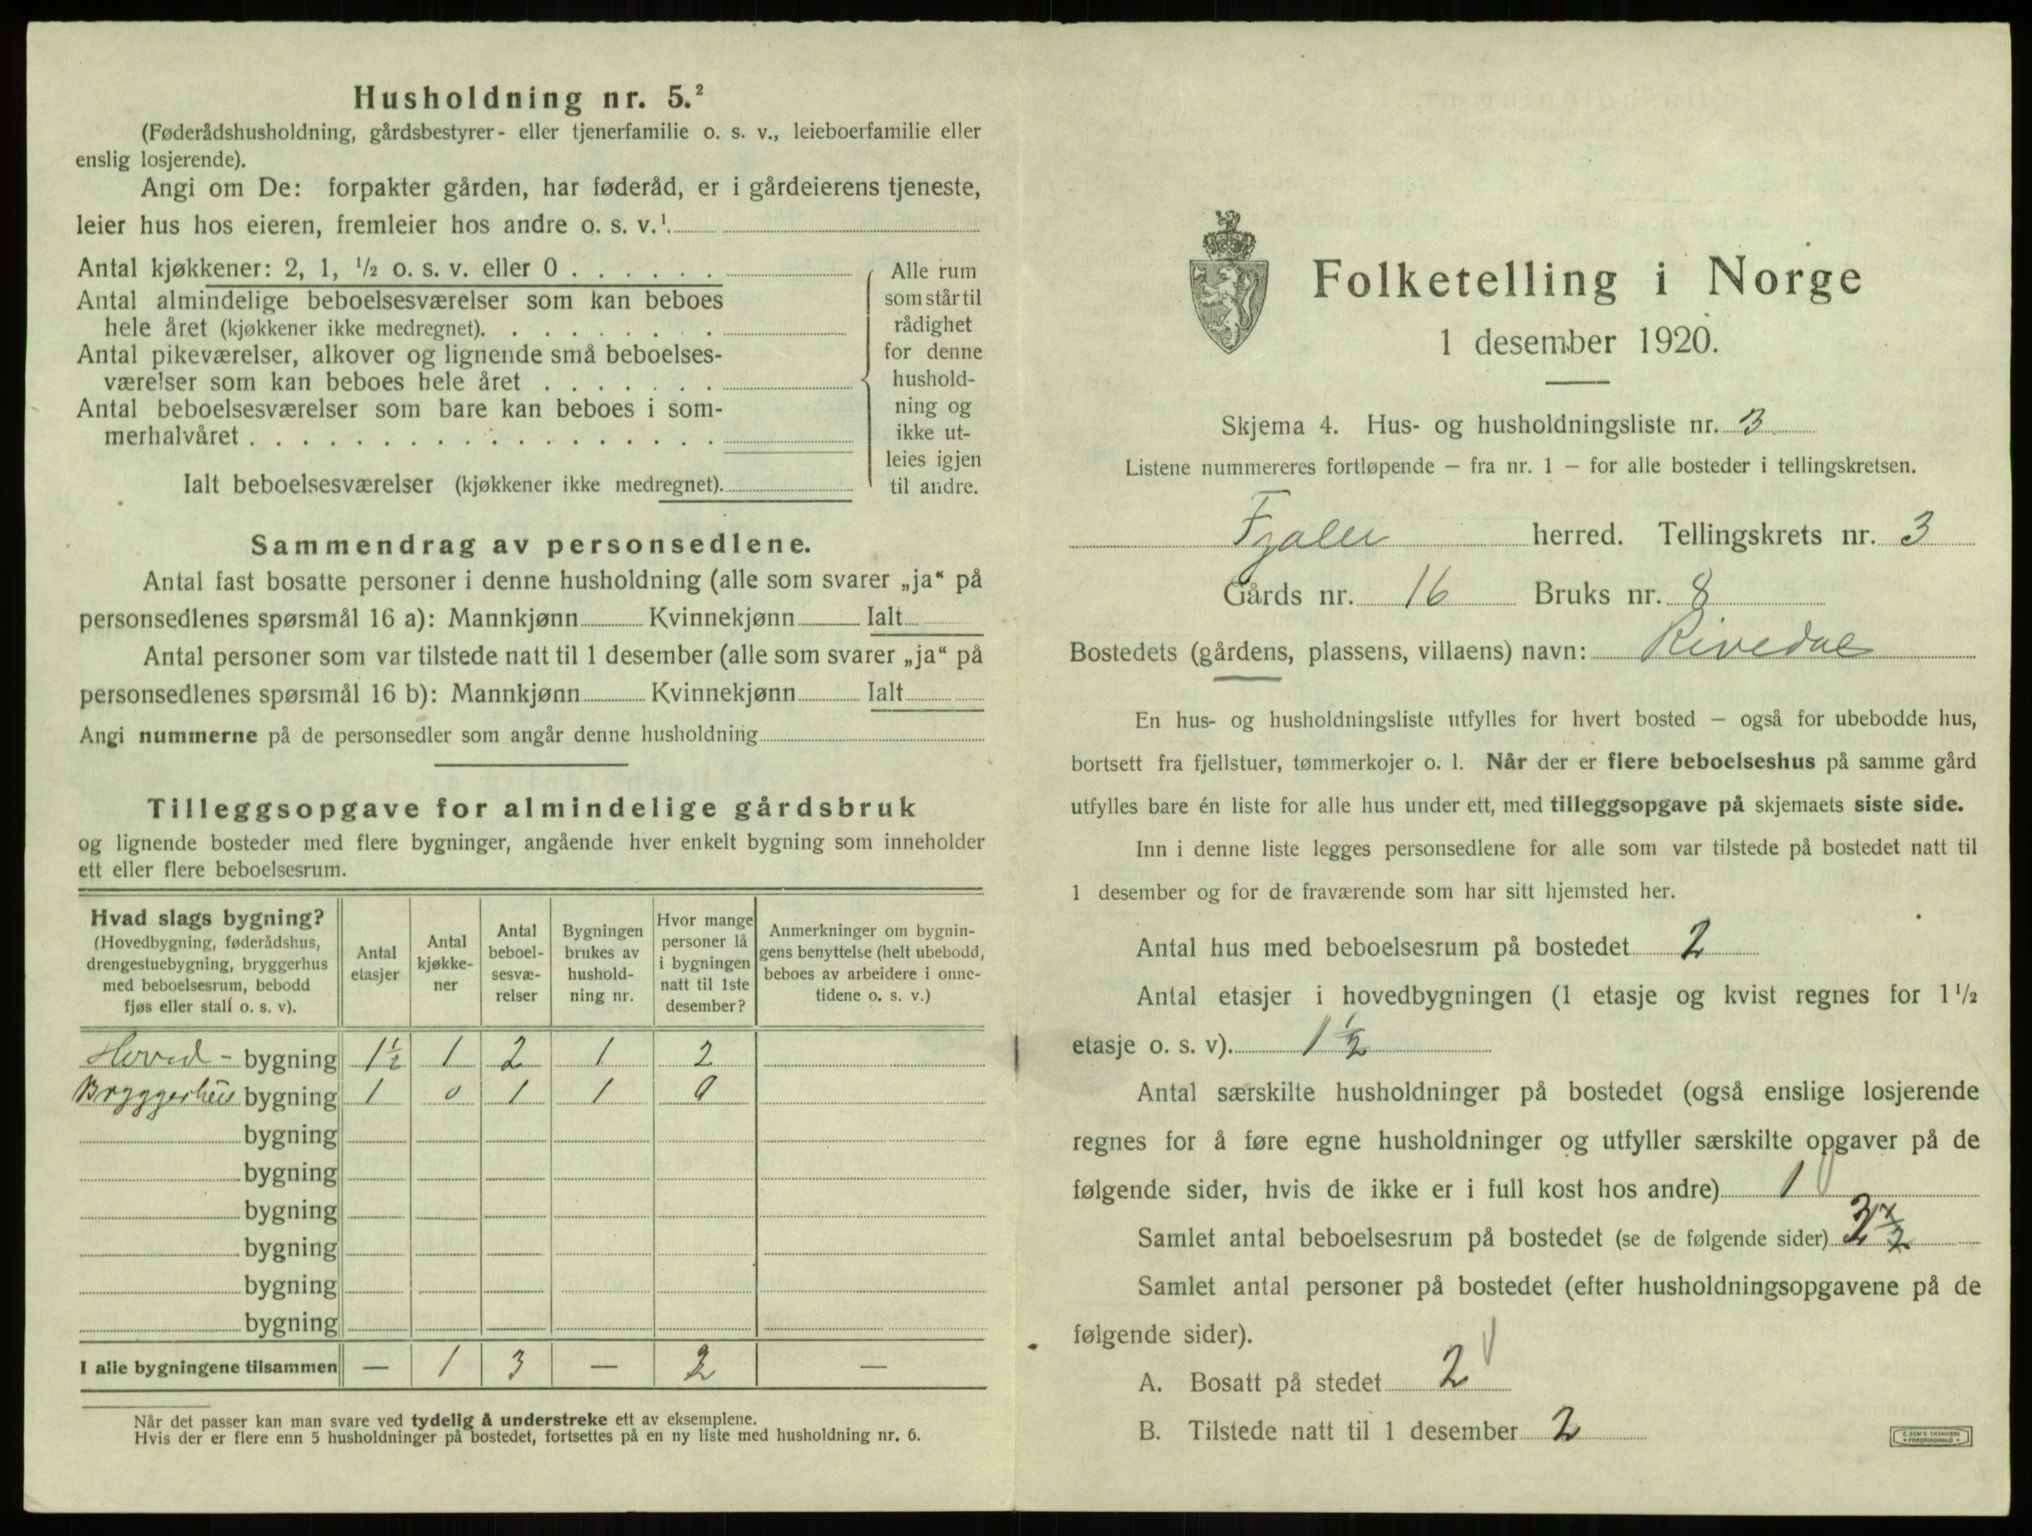 Husholdning nr. 5.²
(Føderådshusholdning, gårdsbestyrer- eller tjenerfamilie o. s. v., leieboerfamilie eller
enslig losjerende).
Angi om De: forpakter gården, har føderåd, er i gårdeierens tjeneste,
leier hus hos eieren, fremleier hos andre o. s. v.¹
Antal kjøkkener: 2, 1, ½ o. s. v. eller 0 . . . . . .
Antal almindelige beboelsesværelser som kan beboes
hele året (kjøkkener ikke medregnet). . . . . . . . .
Antal pikeværelser, alkover og lignende små beboelses-
værelser som kan beboes hele året . . . . . . .
Antal beboelsesværelser som bare kan beboes i som-
merhalvåret . . . . . . . . . . . . . . . . . .
Ialt beboelsesværelser (kjøkkener ikke medregnet).
Alle rum
som står til
rådighet
for denne
hushold-
ning og
ikke ut-
leies igjen
til andre.
Sammendrag av personsedlene.
Antal fast bosatte personer i denne husholdning (alle som svarer „ja“ på
personsedlenes spørsmål 16 a): Mannkjønn Kvinnekjønn Ialt
Antal personer som var tilstede natt til 1 desember (alle som svarer „ja“ på
personsedlenes spørsmål 16 b): Mannkjønn Kvinnekjønn Ialt
Angi nummerne på de personsedler som angår denne husholdning
Tilleggsopgave for almindelige gårdsbruk
og lignende bosteder med flere bygninger, angående hver enkelt bygning som inneholder
ett eller flere beboelsesrum.
Hvad slags bygning?
(Hovedbygning, føderådshus,
drengestuebygning, bryggerhus
med beboelsesrum, bebodd
fjøs eller stall o. s. v).
Antal
etasjer
Antal
kjøkke-
ner
Antal
beboel-
sesvæ-
relser
Bygningen
brukes av
hushold-
ning nr.
Hvor mange
personer lå
i bygningen
natt til 1ste
desember?
Anmerkninger om bygnin-
gens benyttelse (helt ubebodd,
beboes av arbeidere i onne-
tidene o. s. v.)
Hoved - bygning 1½ 1 2 1 2
Bryggerhus bygning 1 0 1 1 0
bygning
bygning
bygning
bygning
bygning
bygning
I alle bygningene tilsammen — 1 3 — 2 —
Når det passer kan man svare ved tydelig å understreke ett av eksemplene.
Hvis der er flere enn 5 husholdninger på bostedet, fortsettes på en ny liste med husholdning nr. 6.
Folketelling i Norge
1 desember 1920.
Skjema 4. Hus- og husholdningsliste nr. 3
Listene nummereres fortløpende – fra nr. 1 – for alle bosteder i tellingskretsen.
Fjaler herred. Tellingskrets nr. 3
Gårds nr. 16 Bruks nr. 8
Bostedets (gårdens, plassens, villaens) navn: Rivedal
En hus- og husholdningsliste utfylles for hvert bosted – også for ubebodde hus,
bortsett fra fjellstuer, tømmerkojer o. l. Når der er flere beboelseshus på samme gård
utfylles bare én liste for alle hus under ett, med tilleggsopgave på skjemaets siste side.
Inn i denne liste legges personsedlene for alle som var tilstede på bostedet natt til
1 desember og for de fraværende som har sitt hjemsted her.
Antal hus med beboelsesrum på bostedet 2
Antal etasjer i hovedbygningen (1 etasje og kvist regnes for 1½
etasje o. s. v). 1½
Antal særskilte husholdninger på bostedet (også enslige losjerende
regnes for å føre egne husholdninger og utfyller særskilte opgaver på de
følgende sider, hvis de ikke er i full kost hos andre) 1
Samlet antal beboelsesrum på bostedet (se de følgende sider)
Samlet antal personer på bostedet (efter husholdningsopgavene på de
følgende sider).
A. Bosatt på stedet 2
B. Tilstede natt til 1 desember 2